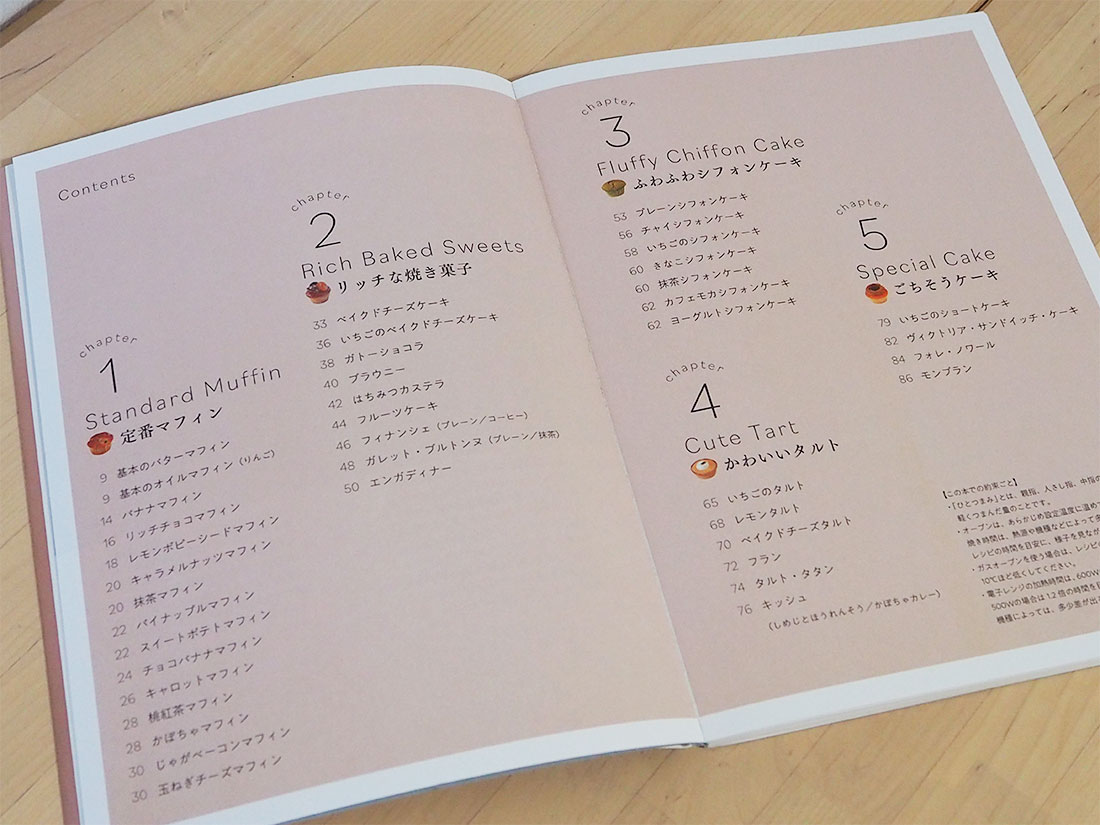 Contents
chapter
1
Standard Muffin
定番マフィン
9 基本のバターマフィン
9 基本のオイルマフィン（りんご）
14 バナナマフィン
16 リッチチョコマフィン
18 レモンポピーシードマフィン
20 キャラメルナッツマフィン
20 抹茶マフィン
22 パイナップルマフィン
22 スイートポテトマフィン
24 チョコバナナマフィン
26 キャロットマフィン
28 桃紅茶マフィン
28 かぼちゃマフィン
30 じゃがベーコンマフィン
30 玉ねぎチーズマフィン
chapter
2
Rich Baked Sweets
リッチな焼き菓子
33 ベイクドチーズケーキ
36 いちごのベイクドチーズケーキ
38 ガトーショコラ
40 ブラウニー
42 はちみつカステラ
44 フルーツケーキ
46 フィナンシェ（プレーン／コーヒー）
48 ガレット・ブルトンヌ（プレーン／抹茶）
50 エンガディナー
chapter
3
Fluffy Chiffon Cake
ふわふわシフォンケーキ
53 プレーンシフォンケーキ
56 チャイシフォンケーキ
58 いちごのシフォンケーキ
60 きなこシフォンケーキ
60 抹茶シフォンケーキ
62 カフェモカシフォンケーキ
62 ヨーグルトシフォンケーキ
chapter
4
Cute Tart
かわいいタルト
65 いちごのタルト
68 レモンタルト
70 ベイクドチーズタルト
72 フラン
74 タルト・タタン
76 キッシュ
（しめじとほうれんそう／かぼちゃカレー）
chapter
5
Special Cake
ごちそうケーキ
79 いちごのショートケーキ
82 ヴィクトリア・サンドイッチ・ケーキ
84 フォレ・ノワール
86 モンブラン
【この本での約束ごと】
・「ひとつまみ」とは、親指、人さし指、中指の
軽くつまんだ量のことです。
・オーブンは、あらかじめ設定温度に温めて
焼き時間は、熱源や機種などによって多
レシピの時間を目安に、様子を見なが
・ガスオーブンを使う場合は、レシピの
10℃ほど低くしてください。
・電子レンジの加熱時間は、600W
500Wの場合は1.2倍の時間を目
機種によっては、多少差が出